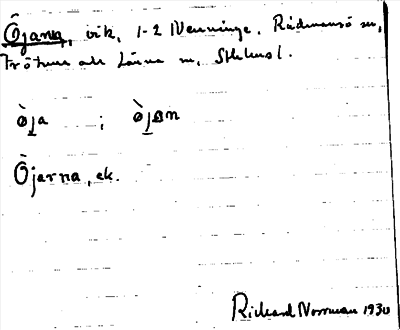 Öjarna, vik, 1-2 Nenninge, Rådmansö sn,
Frötuna och Länna sn, Sthlms l.
òja ; òjan
Öjarna, ek.
Richard Norrman 1930